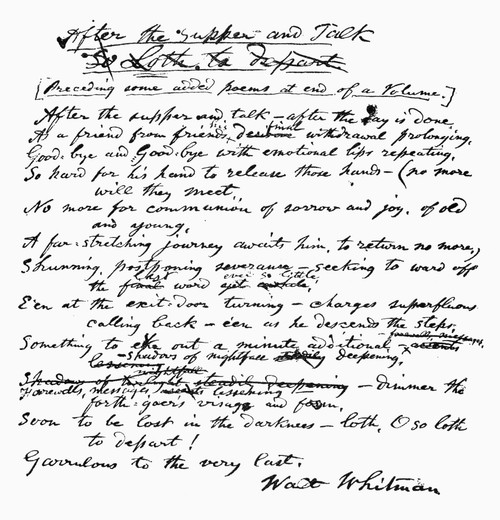 After the Supper and Talk
So Loth to depart
[Preceding some added poems at end of a Volume.]
After the supper and talk – after the day is done,
As a friend from friends, his final withdrawal prolonging,
Good-bye and Good-bye with emotional lips repeating,
So hard for his hand to release those hands – (no more
will they meet,
No more for communion of sorrow and joy, of old
and young,
A far-stretching journey awaits him, to return no more,)
Shunning, postponing severance – seeking to ward off
the last word ever so little,
E'en at the exit-door turning – charges superfluous
calling back – e'en as he descends the steps,
Something to eke out a minute additional –
shadows of nightfall deepening,
Farewells, messages, lessening – dimmer the
forth-goer's visage and form,
Soon to be lost in the darkness – loth, O so loth
to depart!
Garrulous to the very last.
Walt Whitman